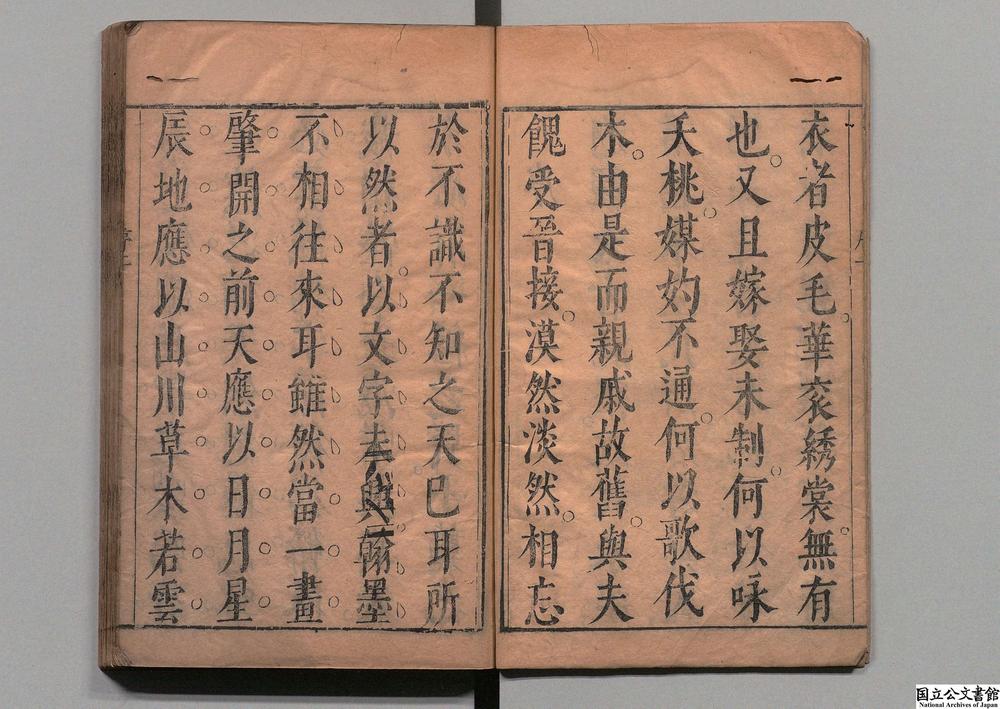 衣者皮毛華衮綉裳無有
也又且嫁娶未制何以咏
夭桃媒妁不通何以歌伐
木由是而親戚故舊與夫
餽受晉接漠然淡然相忘
於不識不知之天巳耳所
以然者以文字未興翰墨
不相往來耳雖然當一畫
肇開之前天應以日月星
辰地應以山川草木若雲
国立公文書館
National Archives of Japan